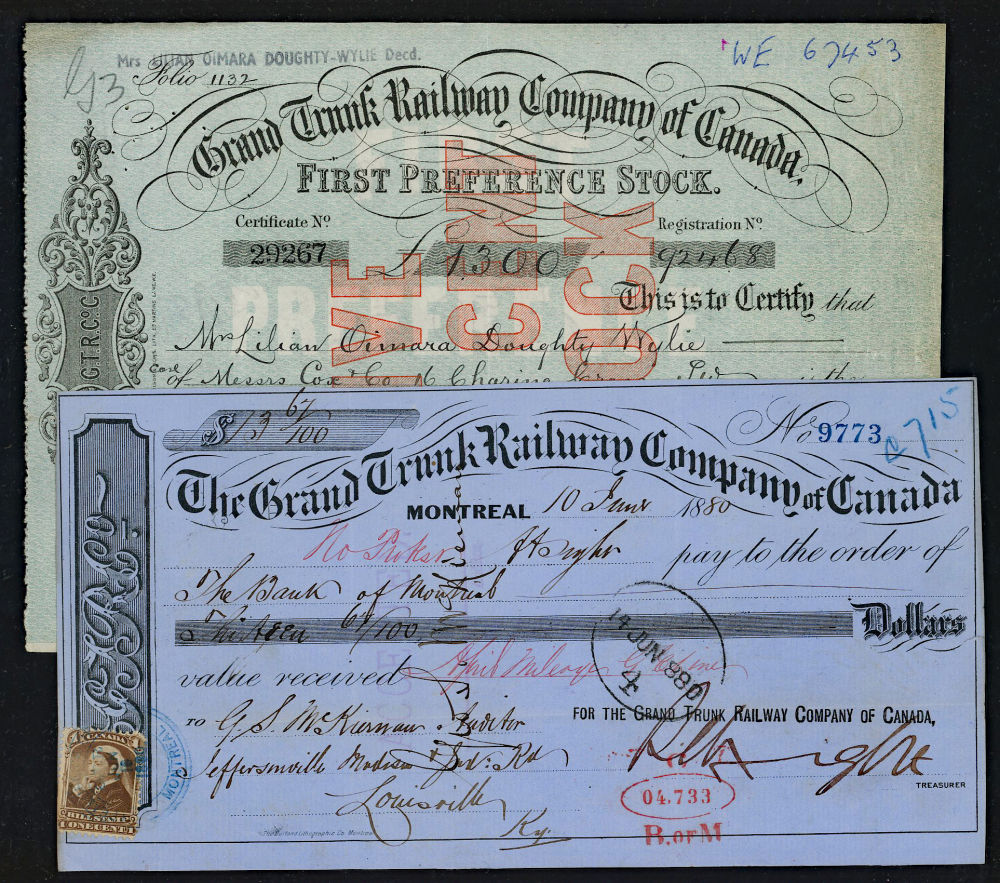 Mrs LILIAN OIMARA DOUGHTY-WYLIE Decd.
WE 67453
G3
Folio 1132
Grand Trunk Railway Company of Canada.
FIRST PREFERENCE STOCK.
Certificate Nº
Registration Nº
29267
£1300
92468
FIVE
CENT
STOCK
This is to Certify that
Mrs Lilian Oimara Doughty Wylie
of Messrs Cox & Co 16 Charing Cross
is the
G.T.R. Co. C
$13 67/100
No 9773
The Grand Trunk Railway Company of Canada
MONTREAL 10 June 1880
At sight pay to the order of
The Bank of Montreal
Thirteen 67/100
Dollars
value received
April Mileage
14 JUN 1880
4
TO G. S. McKiernan Auditor
FOR THE GRAND TRUNK RAILWAY COMPANY OF CANADA,
Jeffersonville Madison & Ind: Rd
Louisville
Ky.
TREASURER
04.733
B. OF M
G.T.R. Co.
MONTREAL
CANADA
BILL STAMP
ONE CENT
The Burland Lithographic Co. Montreal